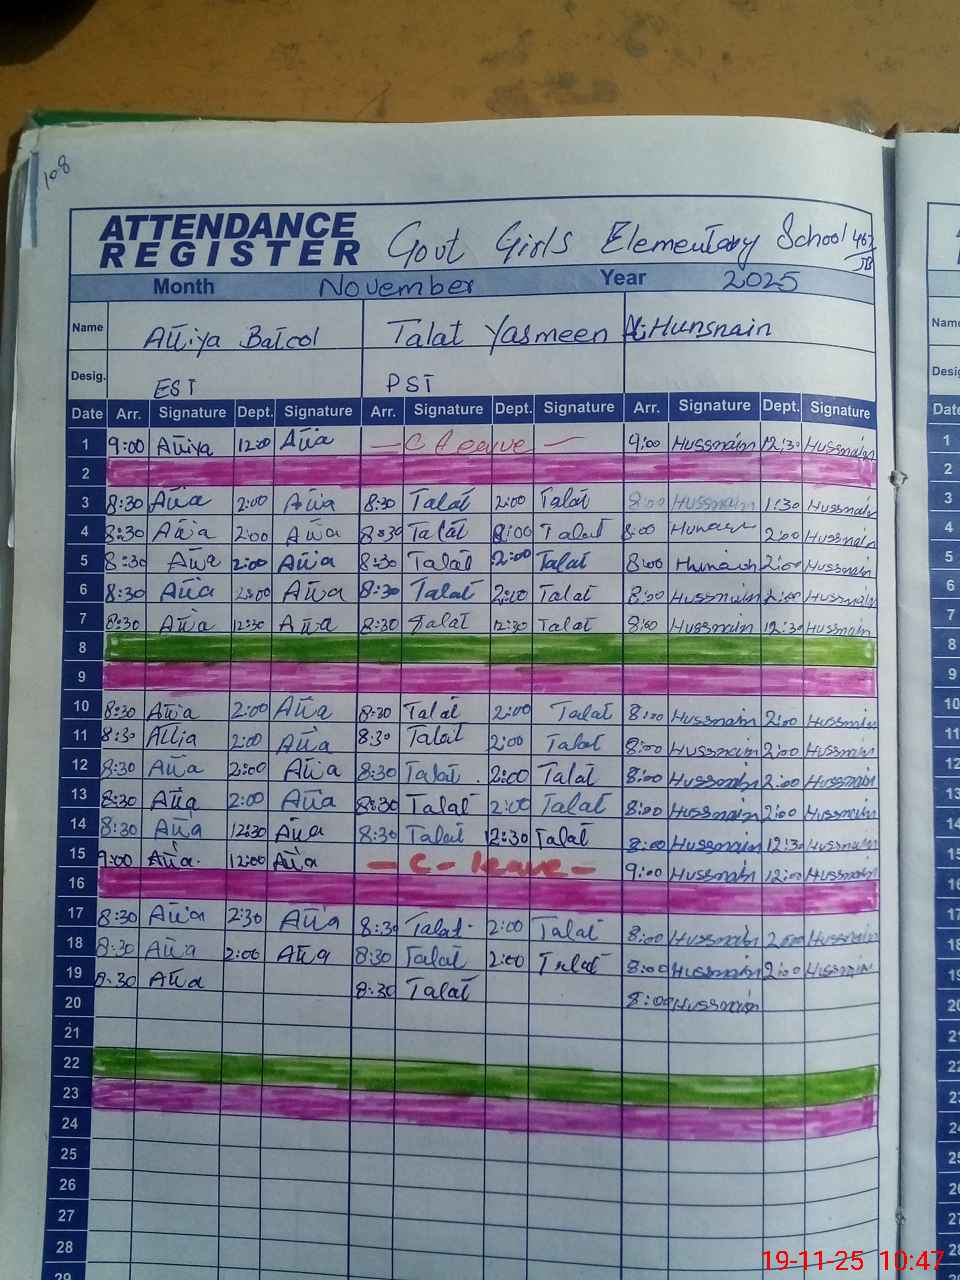 108
ATTENDANCE REGISTER Govt Girls Elementary School 467/JB
Month November Year 2025
Name Attiya Batool Talat Yasmeen Hunsnain
Desig. EST PST
Date Arr. Signature Dept. Signature Arr. Signature Dept. Signature Arr. Signature Dept. Signature
1 9:00 Attiya 12:00 Attia — C leave — 9:00 Hussnain 12:30 Hussnain
2
3 8:30 Attia 2:00 Attia 8:30 Talat 2:00 Talat 8:00 Hussnain 1:30 Hussnain
4 8:30 Attia 2:00 Attia 8:30 Talat 2:00 Talat 8:00 2:00 Hussnain
5 8:30 Attia 2:00 Attia 8:30 Talat 2:00 Talat 8:00 2:00 Hussnain
6 8:30 Attia 2:00 Attia 8:30 Talat 2:00 Talat 8:00 Hussnain 2:00 Hussnain
7 8:30 Attia 12:30 Attia 8:30 Talat 12:30 Talat 8:00 Hussnain 12:30 Hussnain
8
9
10 8:30 Attia 2:00 Attia 8:30 Talat 2:00 Talat 8:00 Hussnain 2:00 Hussnain
11 8:30 Attia 2:00 Attia 8:30 Talat 2:00 Talat 8:00 Hussnain 2:00 Hussnain
12 8:30 Attia 2:00 Attia 8:30 Talat 2:00 Talat 8:00 Hussnain 2:00 Hussnain
13 8:30 Attia 2:00 Attia 8:30 Talat 2:00 Talat 8:00 Hussnain 2:00 Hussnain
14 8:30 Attia 12:30 Attia 8:30 Talat 12:30 Talat 8:00 Hussnain 12:30 Hussnain
15 9:00 Attia 12:00 Attia — C - leave — 9:00 Hussnain 12:00 Hussnain
16
17 8:30 Attia 2:30 Attia 8:30 Talat 2:00 Talat 8:00 Hussnain 2:00 Hussnain
18 8:30 Attia 2:00 Attia 8:30 Talat 2:00 Talat 8:00 Hussnain 2:00 Hussnain
19 8:30 Attia 8:30 Talat 8:00 Hussnain
20
21
22
23
24
25
26
27
28
29
19-11-25 10:47